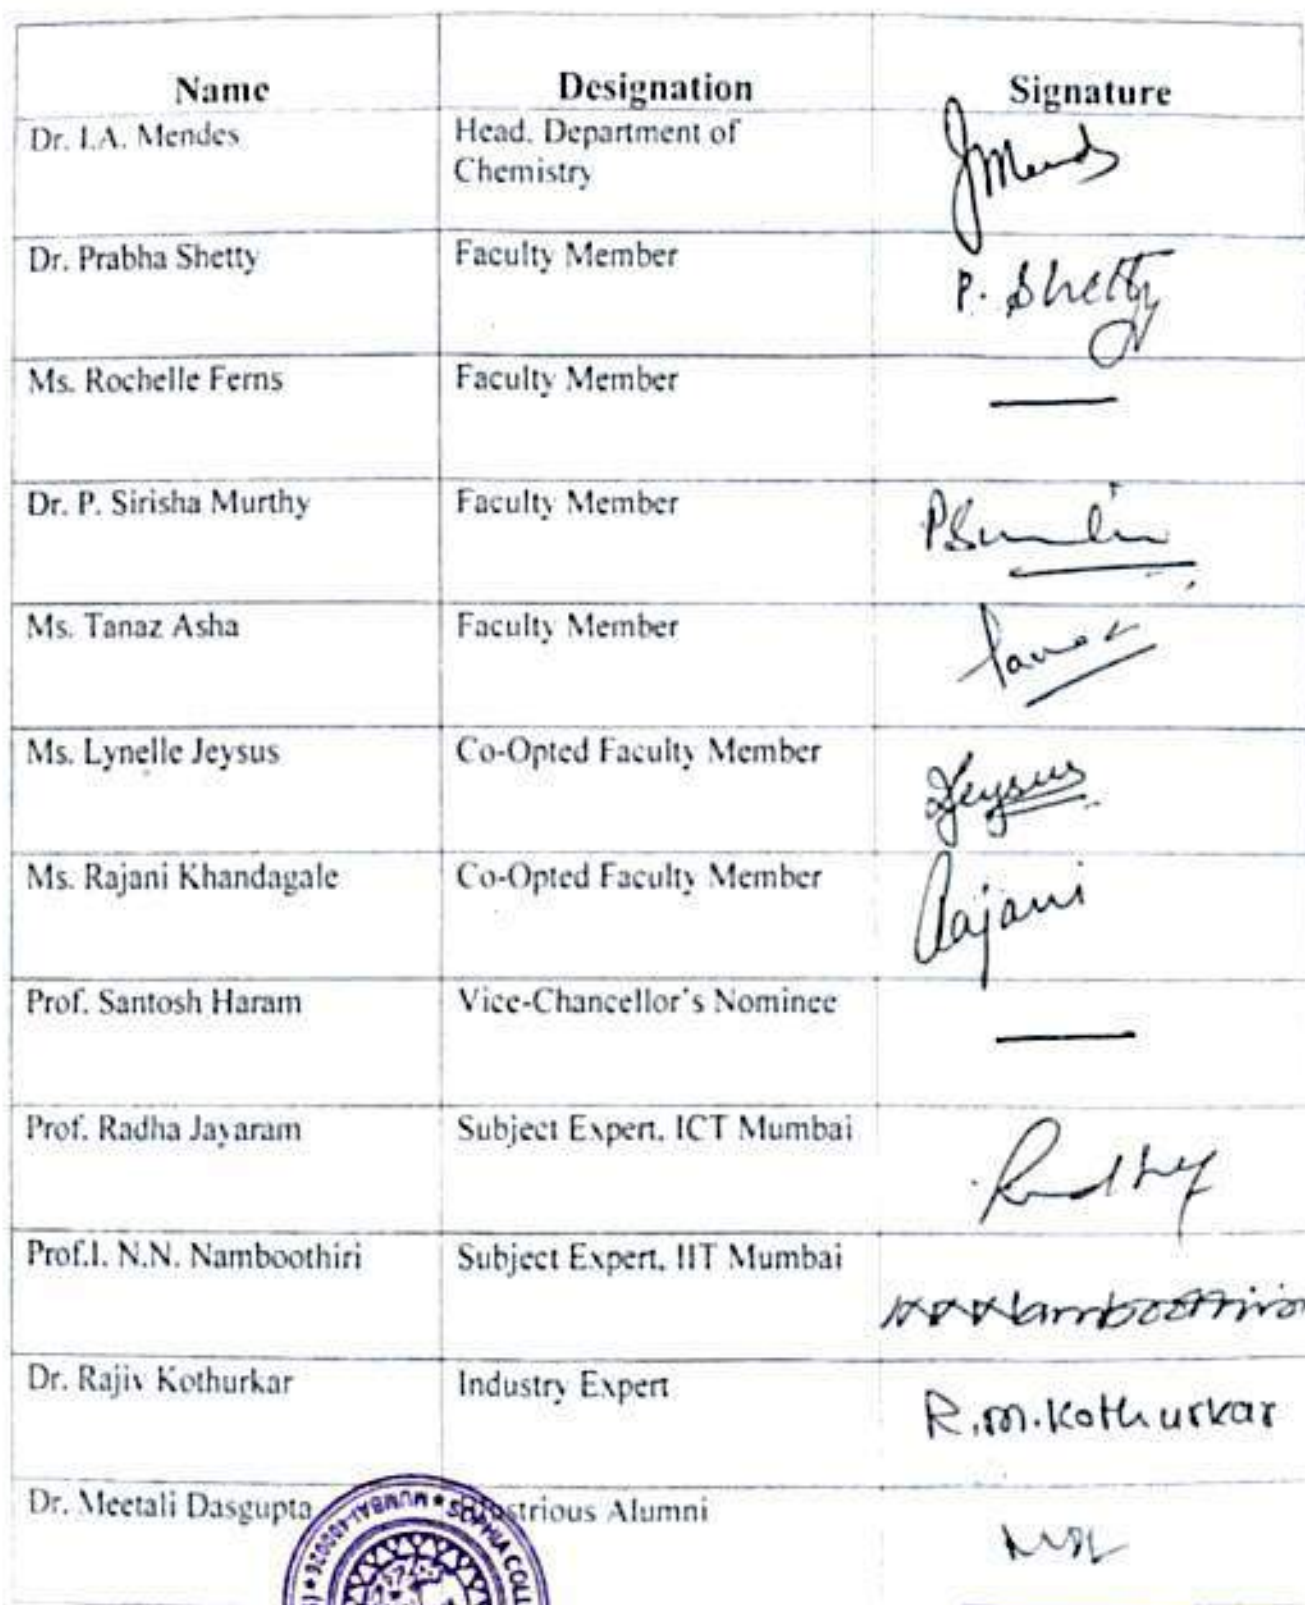 Name Designation Signature
Dr. I.A. Mendes Head, Department of
Chemistry
JMends
Dr. Prabha Shetty Faculty Member
P. Shetty
Ms. Rochelle Ferns Faculty Member
Dr. P. Sirisha Murthy Faculty Member
Ms. Tanaz Asha Faculty Member
Tanaz
Ms. Lynelle Jeysus Co-Opted Faculty Member
LJeysus
Ms. Rajani Khandagale Co-Opted Faculty Member
Rajani
Prof. Santosh Haram Vice-Chancellor's Nominee
Prof. Radha Jayaram Subject Expert, ICT Mumbai
Prof.I. N.N. Namboothiri Subject Expert, IIT Mumbai
Dr. Rajiv Kothurkar Industry Expert
R.M.Kothurkar
Dr. Meetali Dasgupta strious Alumni
MUMBAI-400026 * SOPHIA COLL